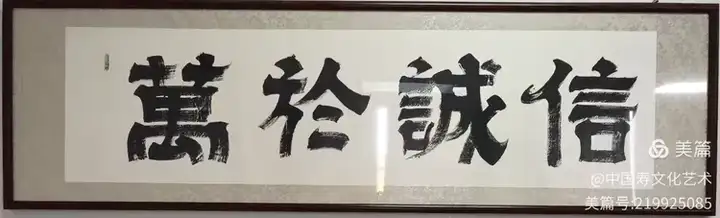 信誠於萬
美篇
@中国寿文化艺术
美篇号:219925085